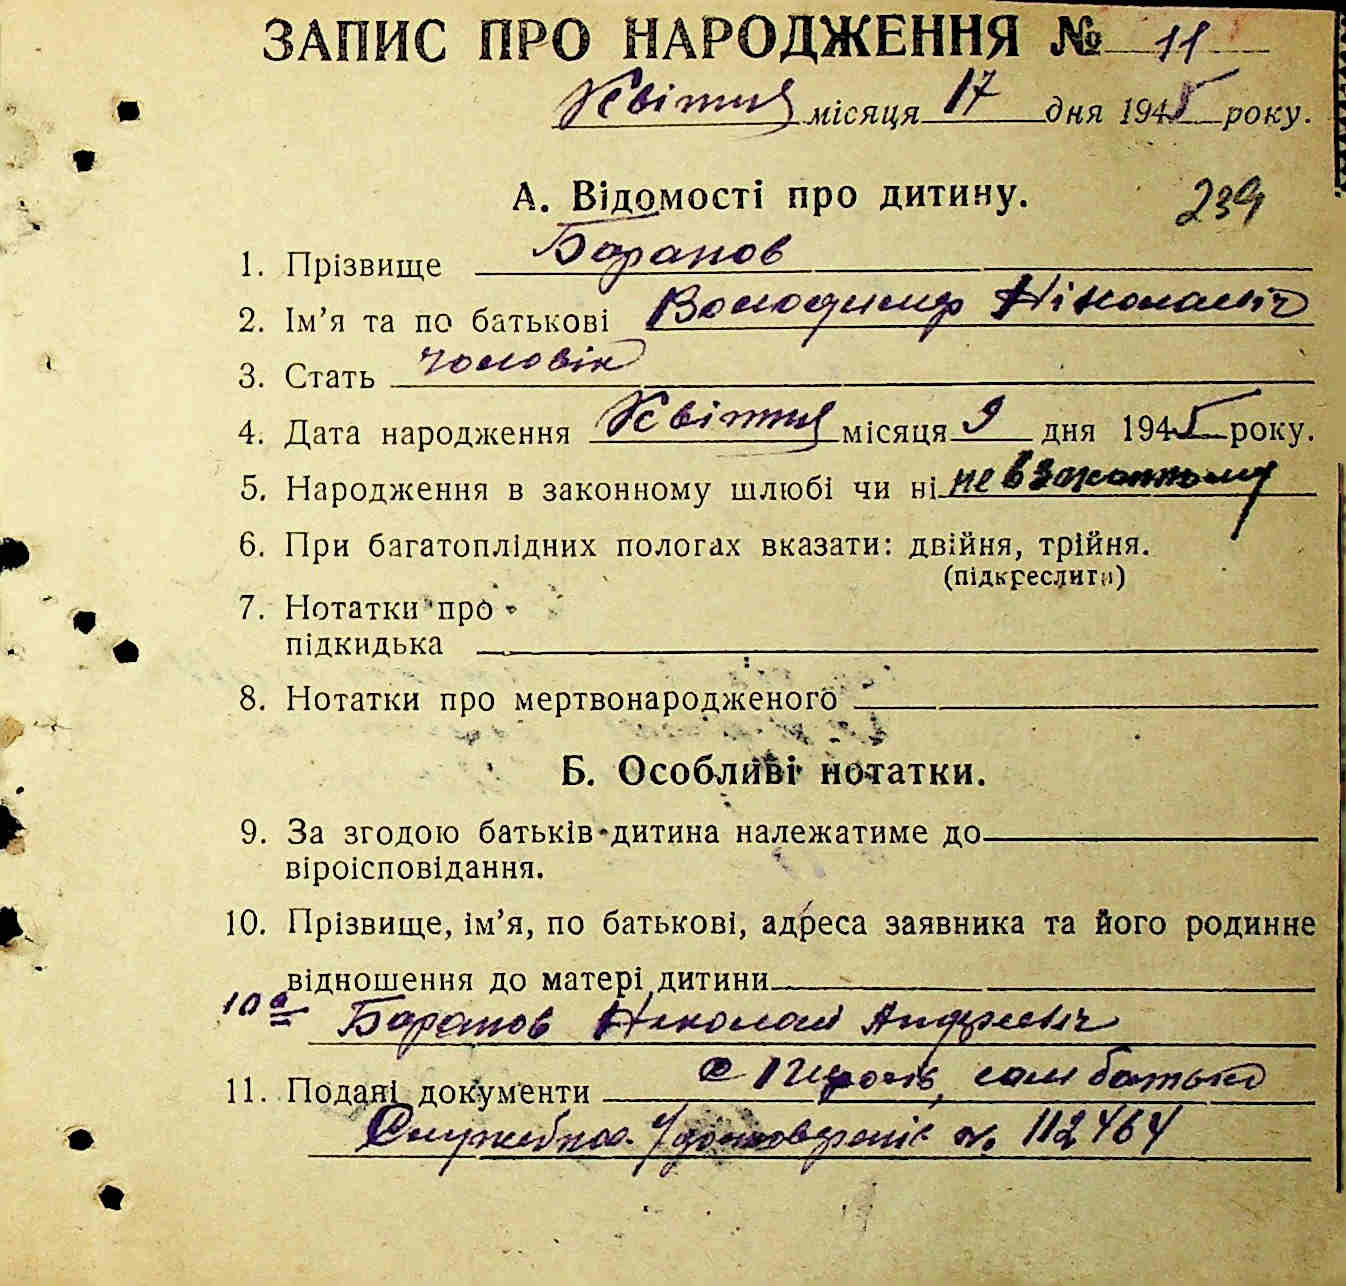 ЗАПИС ПРО НАРОДЖЕННЯ № 11
Квітня місяця 17 дня 1945 року.
А. Відомості про дитину.
239
1. Прізвище Баранов
2. Ім'я та по батькові Володимир Ніколаевіч
3. Стать чоловік
4. Дата народження Квітня місяця 9 дня 1945 року.
5. Народження в законному шлюбі чи ні не в законному
6. При багатоплідних пологах вказати: двійня, трійня.
(підкреслити)
7. Нотатки про
підкидька
8. Нотатки про мертвонародженого
Б. Особливі нотатки.
9. За згодою батьків дитина належатиме до
віроісповідання.
10. Прізвище, ім'я, по батькові, адреса заявника та його родинне
відношення до матері дитини
10а Баранов Ніколай Андреевіч
с сам батько
11. Подані документи
Служебное No 112464